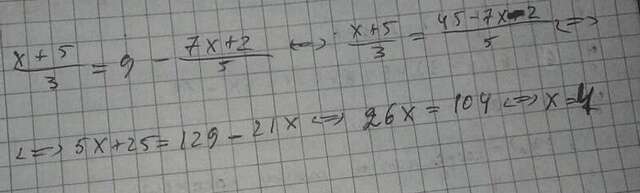 (x+5)/3 = 9 - (7x+2)/5 <=> (x+5)/3 = (45-7x-2)/5 <=>
<=> 5x+25=129-21x <=> 26x=104 <=> x=4.